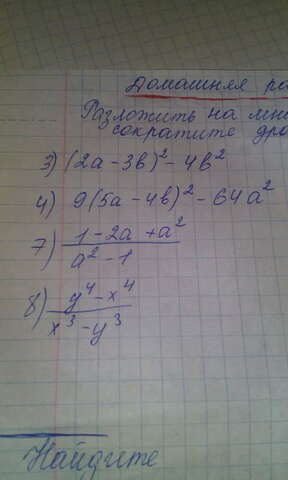 Домашняя
Разложить на
сократите
3) (2a - 3b)² - 4b²
4) 9(5a - 4b)² - 64a²
7) (1 - 2a + a²)/(a² - 1)
8) (y⁴ - x⁴)/(x³ - y³)
Найдите